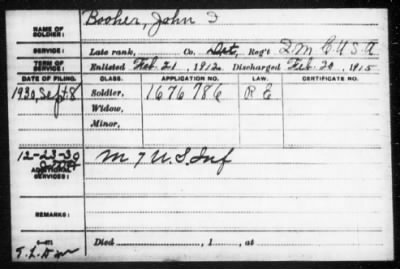 NAME OF SOLDIER: Booher, John F
SERVICE: Late rank, Co. Det, Reg't Q M C U S A
TERM OF SERVICE: Enlisted Feb. 21, 1912 Discharged Feb. 20, 1915
DATE OF FILING. CLASS. APPLICATION NO. LAW. CERTIFICATE NO.
1930, Sept 8 Soldier, 1676786 R E
Widow,
Minor,
12-23-30
ADDITIONAL SERVICES: M 7 U.S. Inf
REMARKS:
Died , 1 , at